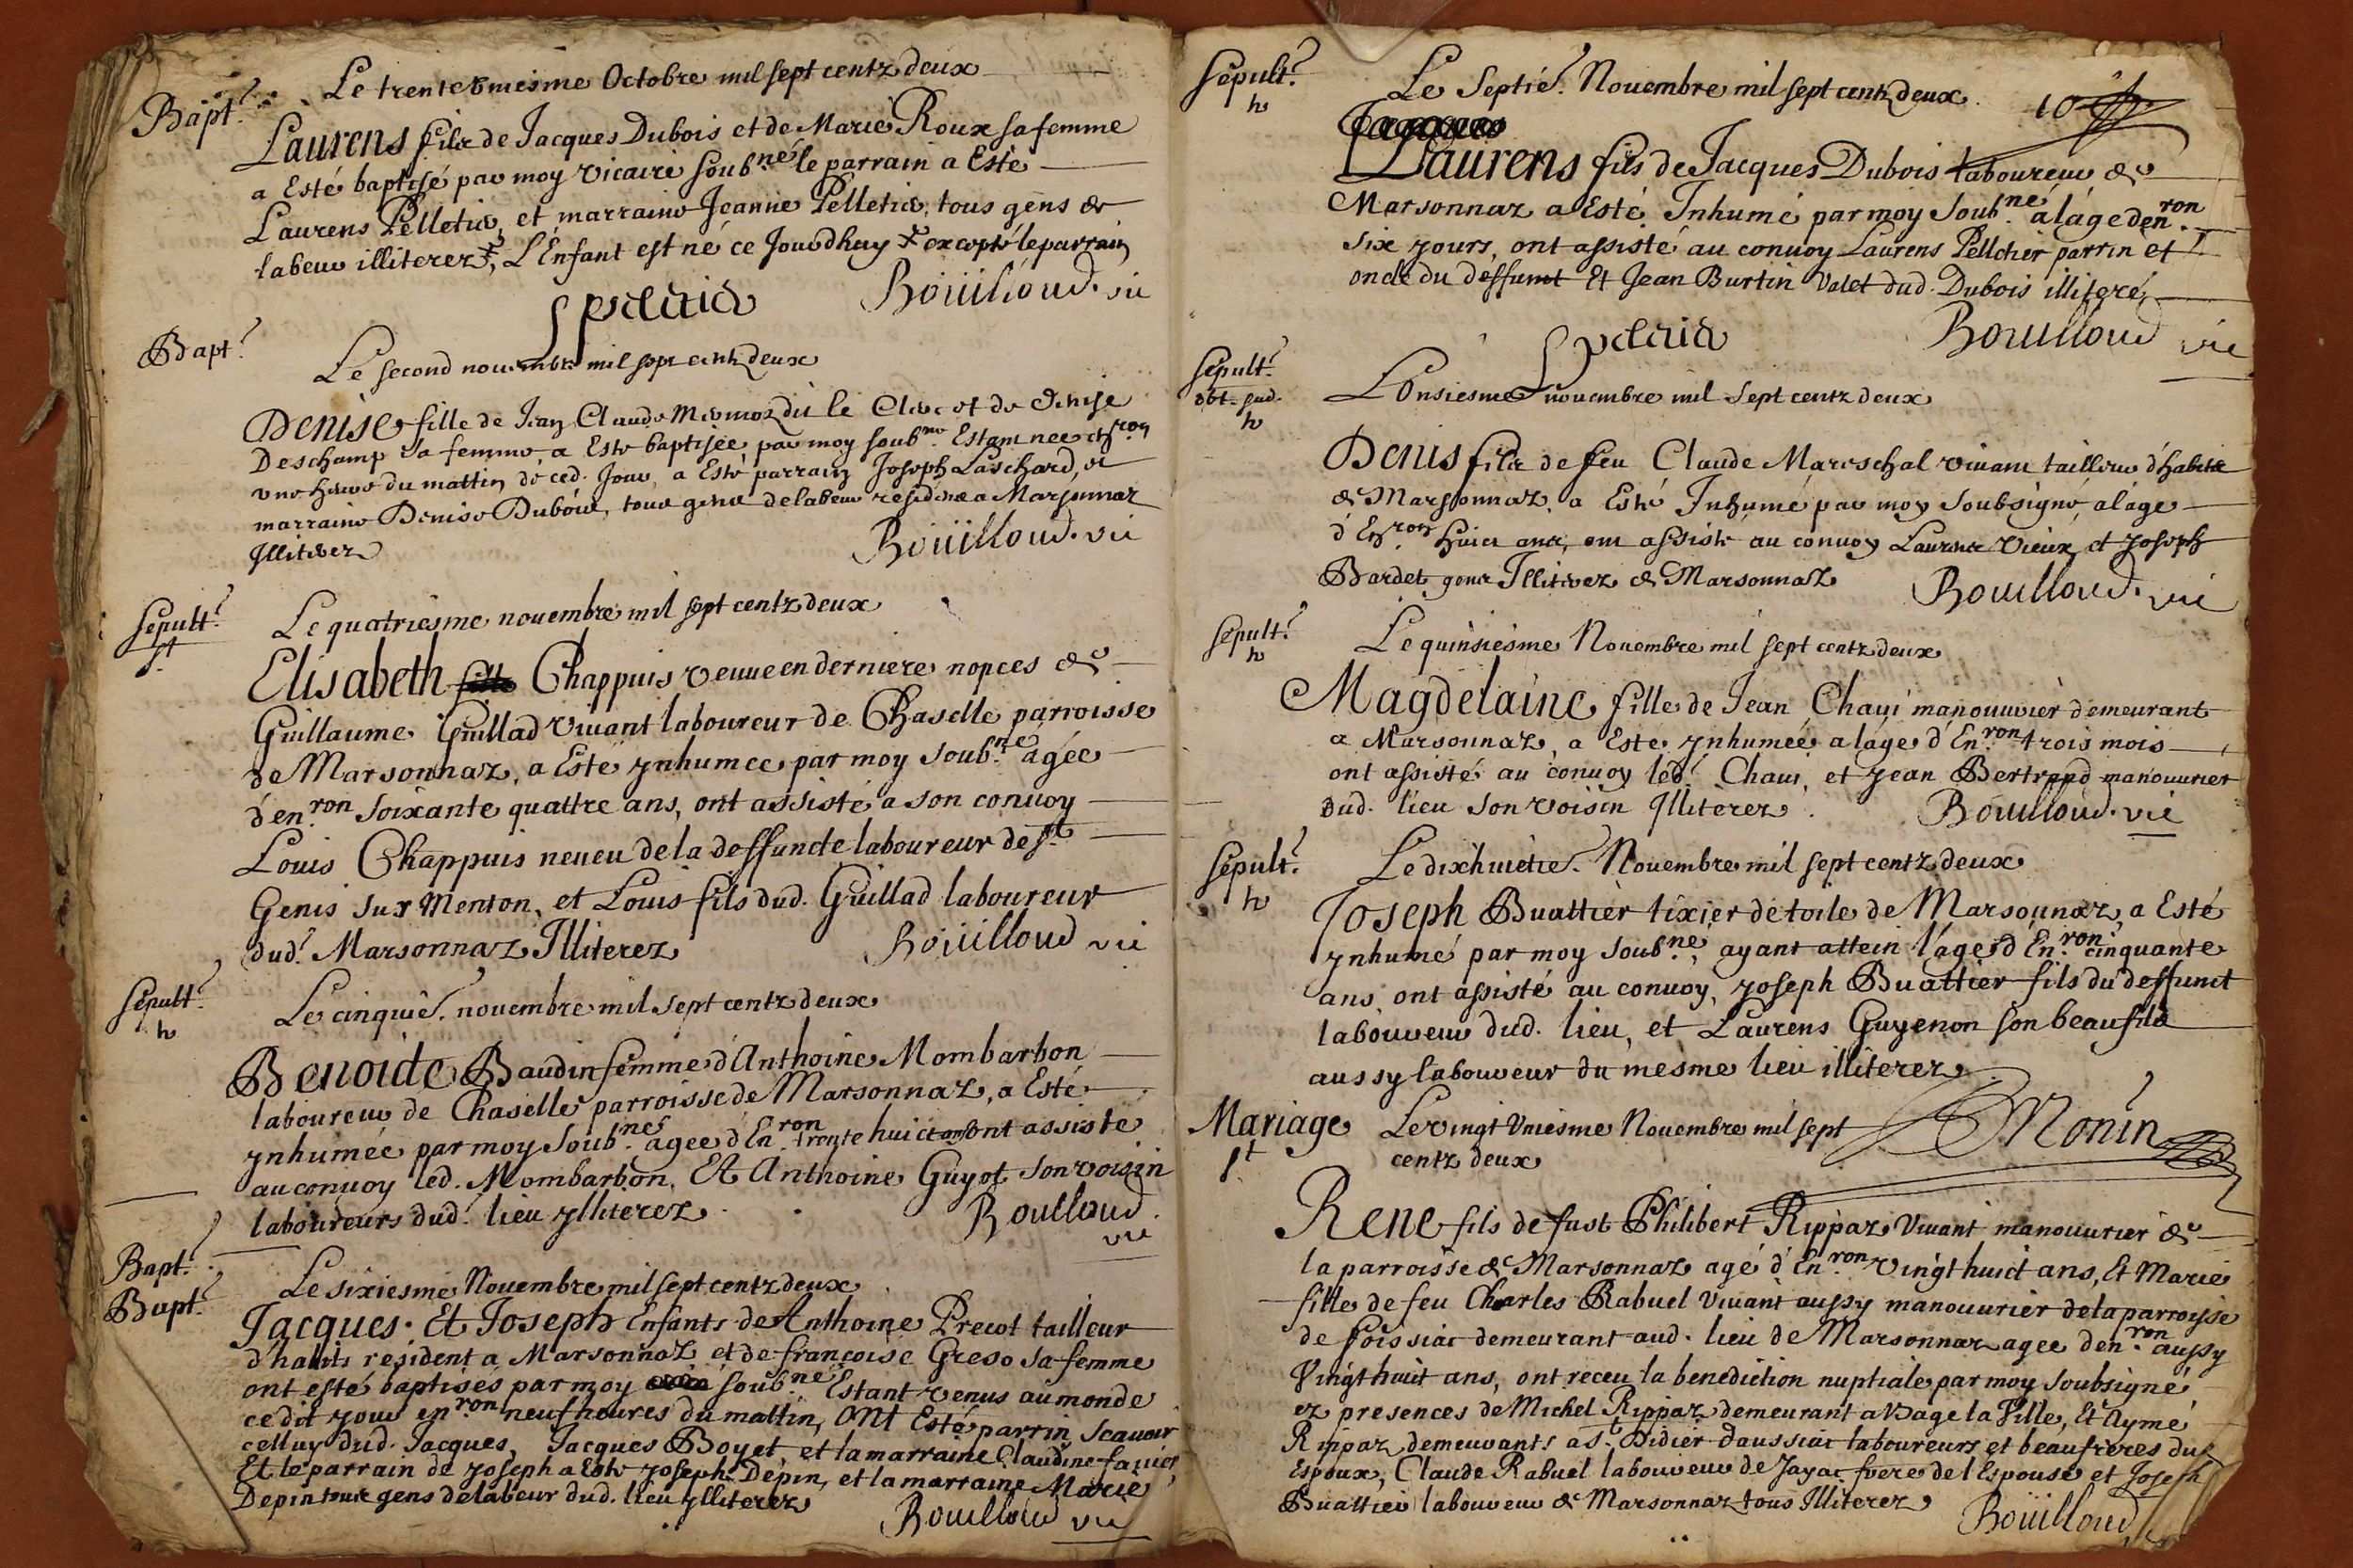 Bapt.
Le trente vniesme Octobre mil sept centz deux
Laurens filz de Jacques Dubois et de Marie Roux sa femme
a Esté baptisé par moy vicaire soub.né le parrain a Esté
Laurens Pelletier, et marraine Jeanne Pelletier, tous gens de
labeur illiterez, L'Enfant est né ce Jourdhuy excepté le parrain
Bouilloud. vic
Bapt.
Le second nouembre mil sept centz deux
Denise fille de Jean Claude dit le Clerc et de Denise
Deschamp sa femme a Esté baptisée par moy soub.né Estant nee en.ron
vne heure du mattin de ced. Jour, a Esté parrain Joseph Laschard, et
marraine Denise Dubois, tous gens de labeur residence a Marsonnaz
Illiterez
Bouilloud. vic
Sepult.
st
Le quatriesme nouembre mil sept centz deux
Elisabeth fille Chappuis veuue en derniere nopces de
Guillaume Guillad viuant laboureur de Chaselle parroisse
de Marsonnaz, a Esté ynhumee par moy soub.né agée
d'en.ron soixante quattre ans, ont assisté a son conuoy
Louis Chappuis neueu de la deffuncte laboureur de st
Genis sur Menton, et Louis fils dud. Guillad laboureur
dud. Marsonnaz Illiterez
Bouilloud vic
Sepult.
h
Le cinquie. nouembre mil sept centz deux
Benoite Baudin femme d'Anthoine Mombarbon
laboureur de Chaselle parroisse de Marsonnaz, a Esté
ynhumée par moy soub.né agee d'En.ron trente huict ans ont assiste
au conuoy led. Mombarbon, Et Anthoine Guyot son voisin
laboureurs dud. lieu ylliterez
Bouilloud.
vic
Bapt.
Bapt.
Le sixiesme Nouembre mil sept centz deux
Jacques. Et Joseph Enfants de Anthoine Precot tailleur
d'habits resident a Marsonnaz et de françoise Greso sa femme
ont esté baptisés par moy soub.né Estant venus au monde
ce dit jour en.ron neuf heures du mattin, ont Esté parrin scauoir
celluy dud. Jacques, Jacques Boyet, et la marraine Claudine
Et le parrain de Joseph a Esté Joseph Depin, et la marraine Marie
Depin tous gens de labeur dud. lieu ylliterez
Bouilloud vic
Sepult.
h
Le Septié. Nouembre mil sept centz deux.
10
Jacques
Laurens fils de Jacques Dubois laboureur de
Marsonnaz a Esté Inhumé par moy Soub.né a lage den.ron
six jours, ont assisté au conuoy Laurens Pelletier parrin et
oncle du deffunct Et Jean Burtin valet dud. Dubois illiteré
Bouilloud vic
Sepult.
h
L'Onsiesme nouembre mil sept centz deux
Denis filz de feu Claude Mareschal viuant tailleur d'habitz
de Marsonnaz, a Esté Inhumé par moy Soubsigné, a lage
d'En.ron huict ans, ont assisté au conuoy Laurens Vieux et Joseph
Bardet gens Illiterez de Marsonnaz
Bouilloud. vic
Sepult.
h
Le quinsiesme Nouembre mil sept centz deux
Magdelaine fille de Jean Chaui manouurier demeurant
a Marsonnaz, a Este ynhumée a lage d'En.ron trois mois
ont assisté au conuoy led. Chaui, et Jean Bertrand manouurier
dud. lieu son voisin Illiterez.
Bouilloud. vic
Sepult.
h
Le dixhuietie. Nouembre mil sept centz deux
Joseph Buattier tixier de toile de Marsonnaz a Esté
ynhumé par moy soub.né, ayant attein l'age d'En.ron cinquante
ans, ont assisté au conuoy, Joseph Buattier fils du deffunct
laboureur dud. lieu, et Laurens Guyenon son beau filz
aussy laboureur du mesme lieu illiterez
Monin
Mariage
st
Le vingt vniesme Nouembre mil sept
centz deux
Rene fils de fust Philibert Rippaz viuant manouurier de
la parroisse de Marsonnaz agé d'En.ron vingt huict ans, Et Marie
fille de feu Charles Rabuel viuant aussy manouurier de la parroisse
de foissiac demeurant aud. lieu de Marsonnaz agee den.ron aussy
vingt huit ans, ont receu la benediction nuptiale par moy soubsigné
ez presences de Michel Rippaz demeurant a Bage la Ville, Et Aymé
Rippaz demeurants a st. Didier daussiac laboureurs et beaufreres du
Espoux, Claude Rabuel laboureur de Jayac frere de l'Espouse et Joseph
Buattier laboureur de Marsonnaz tous Illiterez
Bouilloud